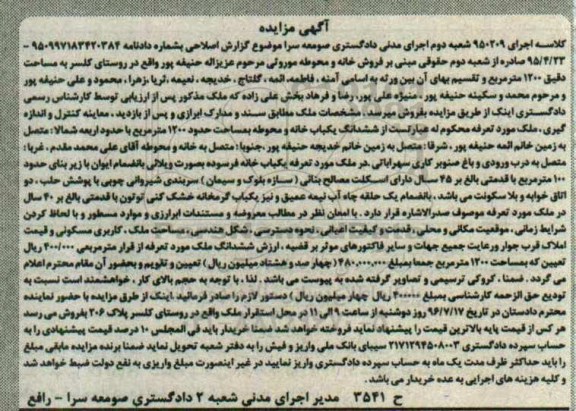 آگهی مزایده
کلاسه اجرای 950209 شعبه دوم اجرای مدنی دادگستری صومعه سرا موضوع گزارش اصلاحی بشماره دادنامه 950997183420384 –
95/4/23 صادره از شعبه دوم حقوقی مبنی بر فروش خانه و محوطه موروثی مرحوم عزیزاله حنیفه پور واقع در روستای کلسر به مساحت
دقیق 1200 مترمربع و تقسیم بهای آن بین ورثه به اسامی آمنه ، فاطمه، ائمه ، گلتاج ، خدیجه ، نعیمه ،ثریا ،زهرا ، محمود و علی حنیفه پور
و مرحوم محمد و سکینه حنیفه پور ، منیره علی پور، رضا و فرهاد بخش علی زاده که ملک مذکور پس از ارزیابی توسط کارشناس رسمی
دادگستری اینک از طریق مزایده بفروش میرسد. مشخصات ملک مطابق سند و مدارک ابرازی و پس از بازدید ، معاینه کنترل و اندازه
گیری ، ملک مورد تعرفه محکوم له عبارتست از ششدانگ یکباب خانه و محوطه بمساحت حدود 1200 مترمربع با حدود اربعه شمالا : متصل
به زمین خانم ائمه حنیفه پور ، شرقا : متصل به زمین خانم خدیجه حنیفه پور ،جنوبا : متصل به خانه و محوطه آقای علی محمد مقدم ، غربا :
متصل به درب ورودی و باغ صنوبر کاری سهراباتی .در ملک مورد تعرفه یکباب خانه فرسوده بصورت ویلائی بانضمام ایوان با زیر بنای حدود
100 مترمربع با قدمتی بالغ بر 45 سال دارای اسکلت مصالح بنائی ( سازه بلوک و سیمان ) سربندی شیروانی چوبی با پوشش حلب ، دو
اتاق خوابه و بلا سکونت می باشد، بانضمام یک حلقه چاه آب نیمه عمیق و نیز یکباب گرمخانه خشک کنی توتون با قدمتی بالغ بر 40 سال
در ملک مورد تعرفه موصوف صدرالاشاره قرار دارد . با امعان نظر در مطالب معروضه و مستندات ابرارزی و موارد مسطور و با لحاظ کردن
شرایط زمانی ، موقعیت مکانی و محلی ، قدمت و کیفیت اعیانی ، نحوه دسترسی ، شکل هندسی ، مساحت ملک ، کاربری مسکونی و قیمت
املاک قرب جوار ورعایت جمیع جهات و سایر فاکتورهای موثر بر قضیه ، ارزش ششدانگ ملک مورد تعرفه از قرار مترمربعی 400/000 ریال
تعیین که بمساحت 1200 مترمربع جمعا بمبلغ 480.000.000 ( چهار صد و هشتاد میلیون ریال ) تعیین و تقویم و بحضور آن مقام محترم اعلام
می گردد . ضمنا . کروکی ترسیمی و تصاویر گرفته شده به پیوست می باشد . لذا ، با توجه به حجم بالای کار ، خواهشمند است نسبت به
تودیع حق الزحمه کارشناسی بمبلغ ریال چهار میلیون ریال ) دستور لازم را صادر فرمائید .اینک از طرق مزایده با حضور نماینده
محترم دادستان در تاریخ 96/7/17 روز دوشنبه از ساعت 9 الی 11 در محل استقرار ملک واقع در روستای کلسر پلاک 206 بفروش می رسد
هر کس از قیمت پایه بالاترین قیمت را پیشنهاد نماید فروخته خواهد شد ضمنا خریدار باید فی المجلس 10 درصد قیمت پیشنهادی را به
حساب سپرده دادگستری 2171294508003 سیبای بانک ملی واریز و فیش را به دفتر شعبه تحویل نماید ضمنا برنده مزایده مابقی مبلغ
را باید حداکثر ظرف مدت یک ماه به حساب سپرده دادگستری واریز نمایید در غیر اینصورت مبلغ واریزی به نفع دولت ضبط خواهد شد
و کلیه هزینه های اجرایی به عده خریدار می باشد .
ح 3541 مدیر اجرای مدنی شعبه 2 دادگستری صومعه سرا – رافع